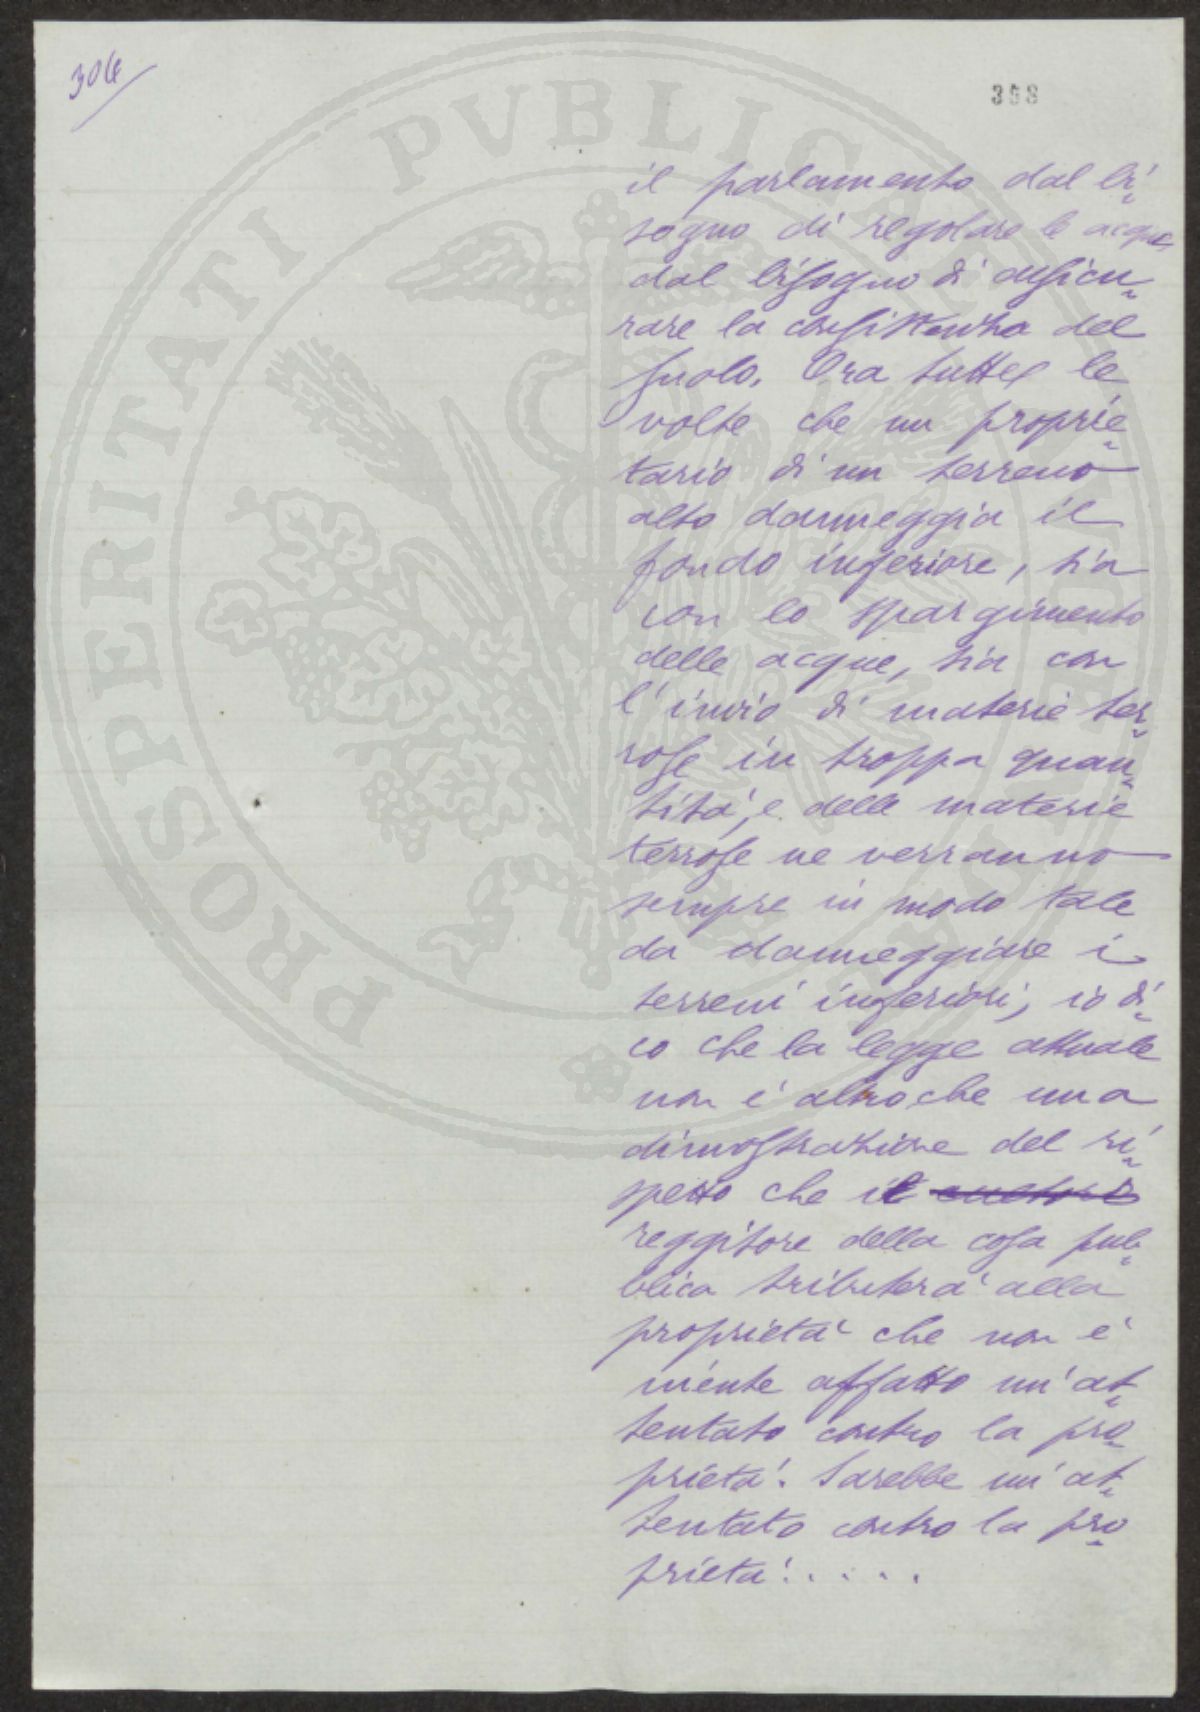 306
398
PROSPERITATI PUBLICAE
il parlamento dal bi-
sogno di regolare le acque
dal bisogno di assicu-
rare la consistenza del
suolo. Ora tutte le
volte che un proprie-
tario di un terreno
alto danneggia il
fondo inferiore, sia
con lo spargimento
delle acque, sia con
l'invio di materie ter-
rose in troppa quan-
tità, e delle materie
terrose ne verranno
sempre in modo tale
da danneggiare i
terreni inferiori, io di-
co che la legge attuale
non è altro che una
dimostrazione del ri-
spetto che il
reggitore della cosa pub-
blica tributerà alla
proprietà che non è
niente affatto un'at-
tentato contro la pro-
prietà. Sarebbe un'at-
tentato contro la pro-
prietà.....